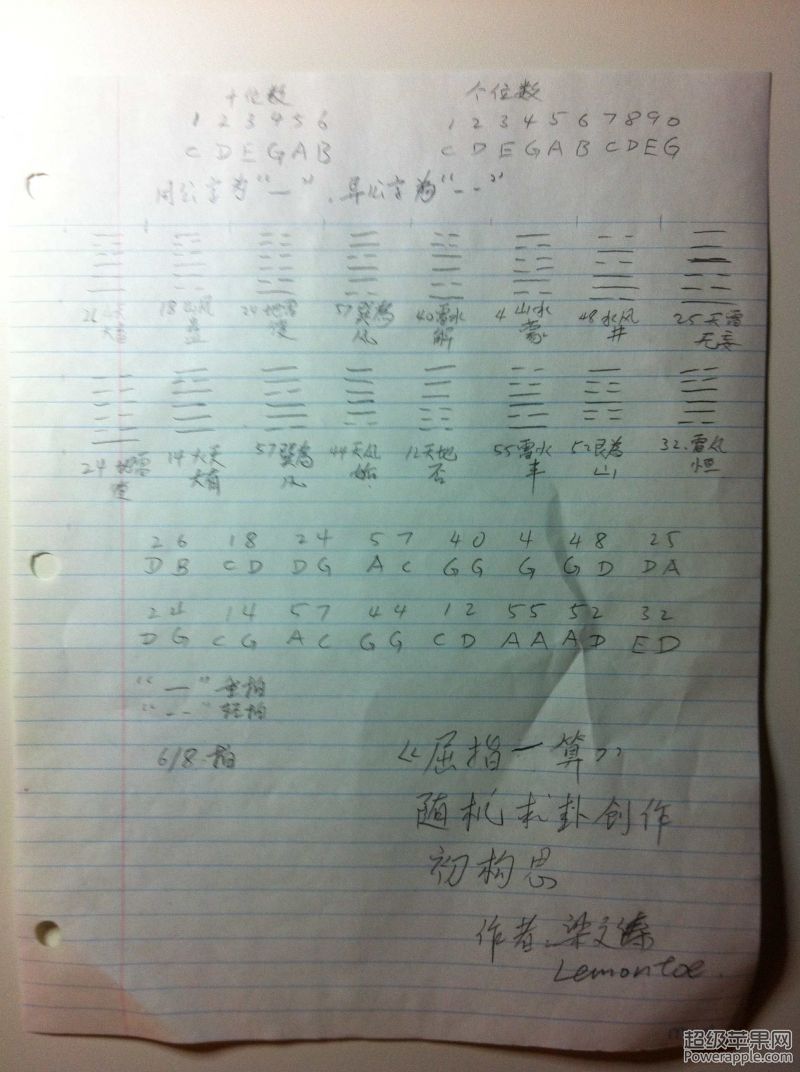 十位数 个位数
1 2 3 4 5 6 1 2 3 4 5 6 7 8 9 0
C D E G A B C D E G A B C D E G
字为“—”，字为“- -”
26 大畜 18 山风 蛊 24 地雷 复 57 巽為 风 40 雷水 解 4 山水 蒙 48 水风 井 25 天雷 无妄
24 地雷 复 14 火天 大有 57 巽為 风 44 天风 12 天地 否 55 雷水 丰 52 艮為 山 32 雷风 恒
26 18 24 57 40 4 48 25
DB CD DG AC GG G GD DA
24 14 57 44 12 55 52 32
DG CG AC GG CD AA AD ED
“—”重拍
“- -”轻拍
6/8 拍
《屈指一算》
随机卦创作
初构思
作者 梁文
Lemontoe
超级苹果网
Powerapple.com